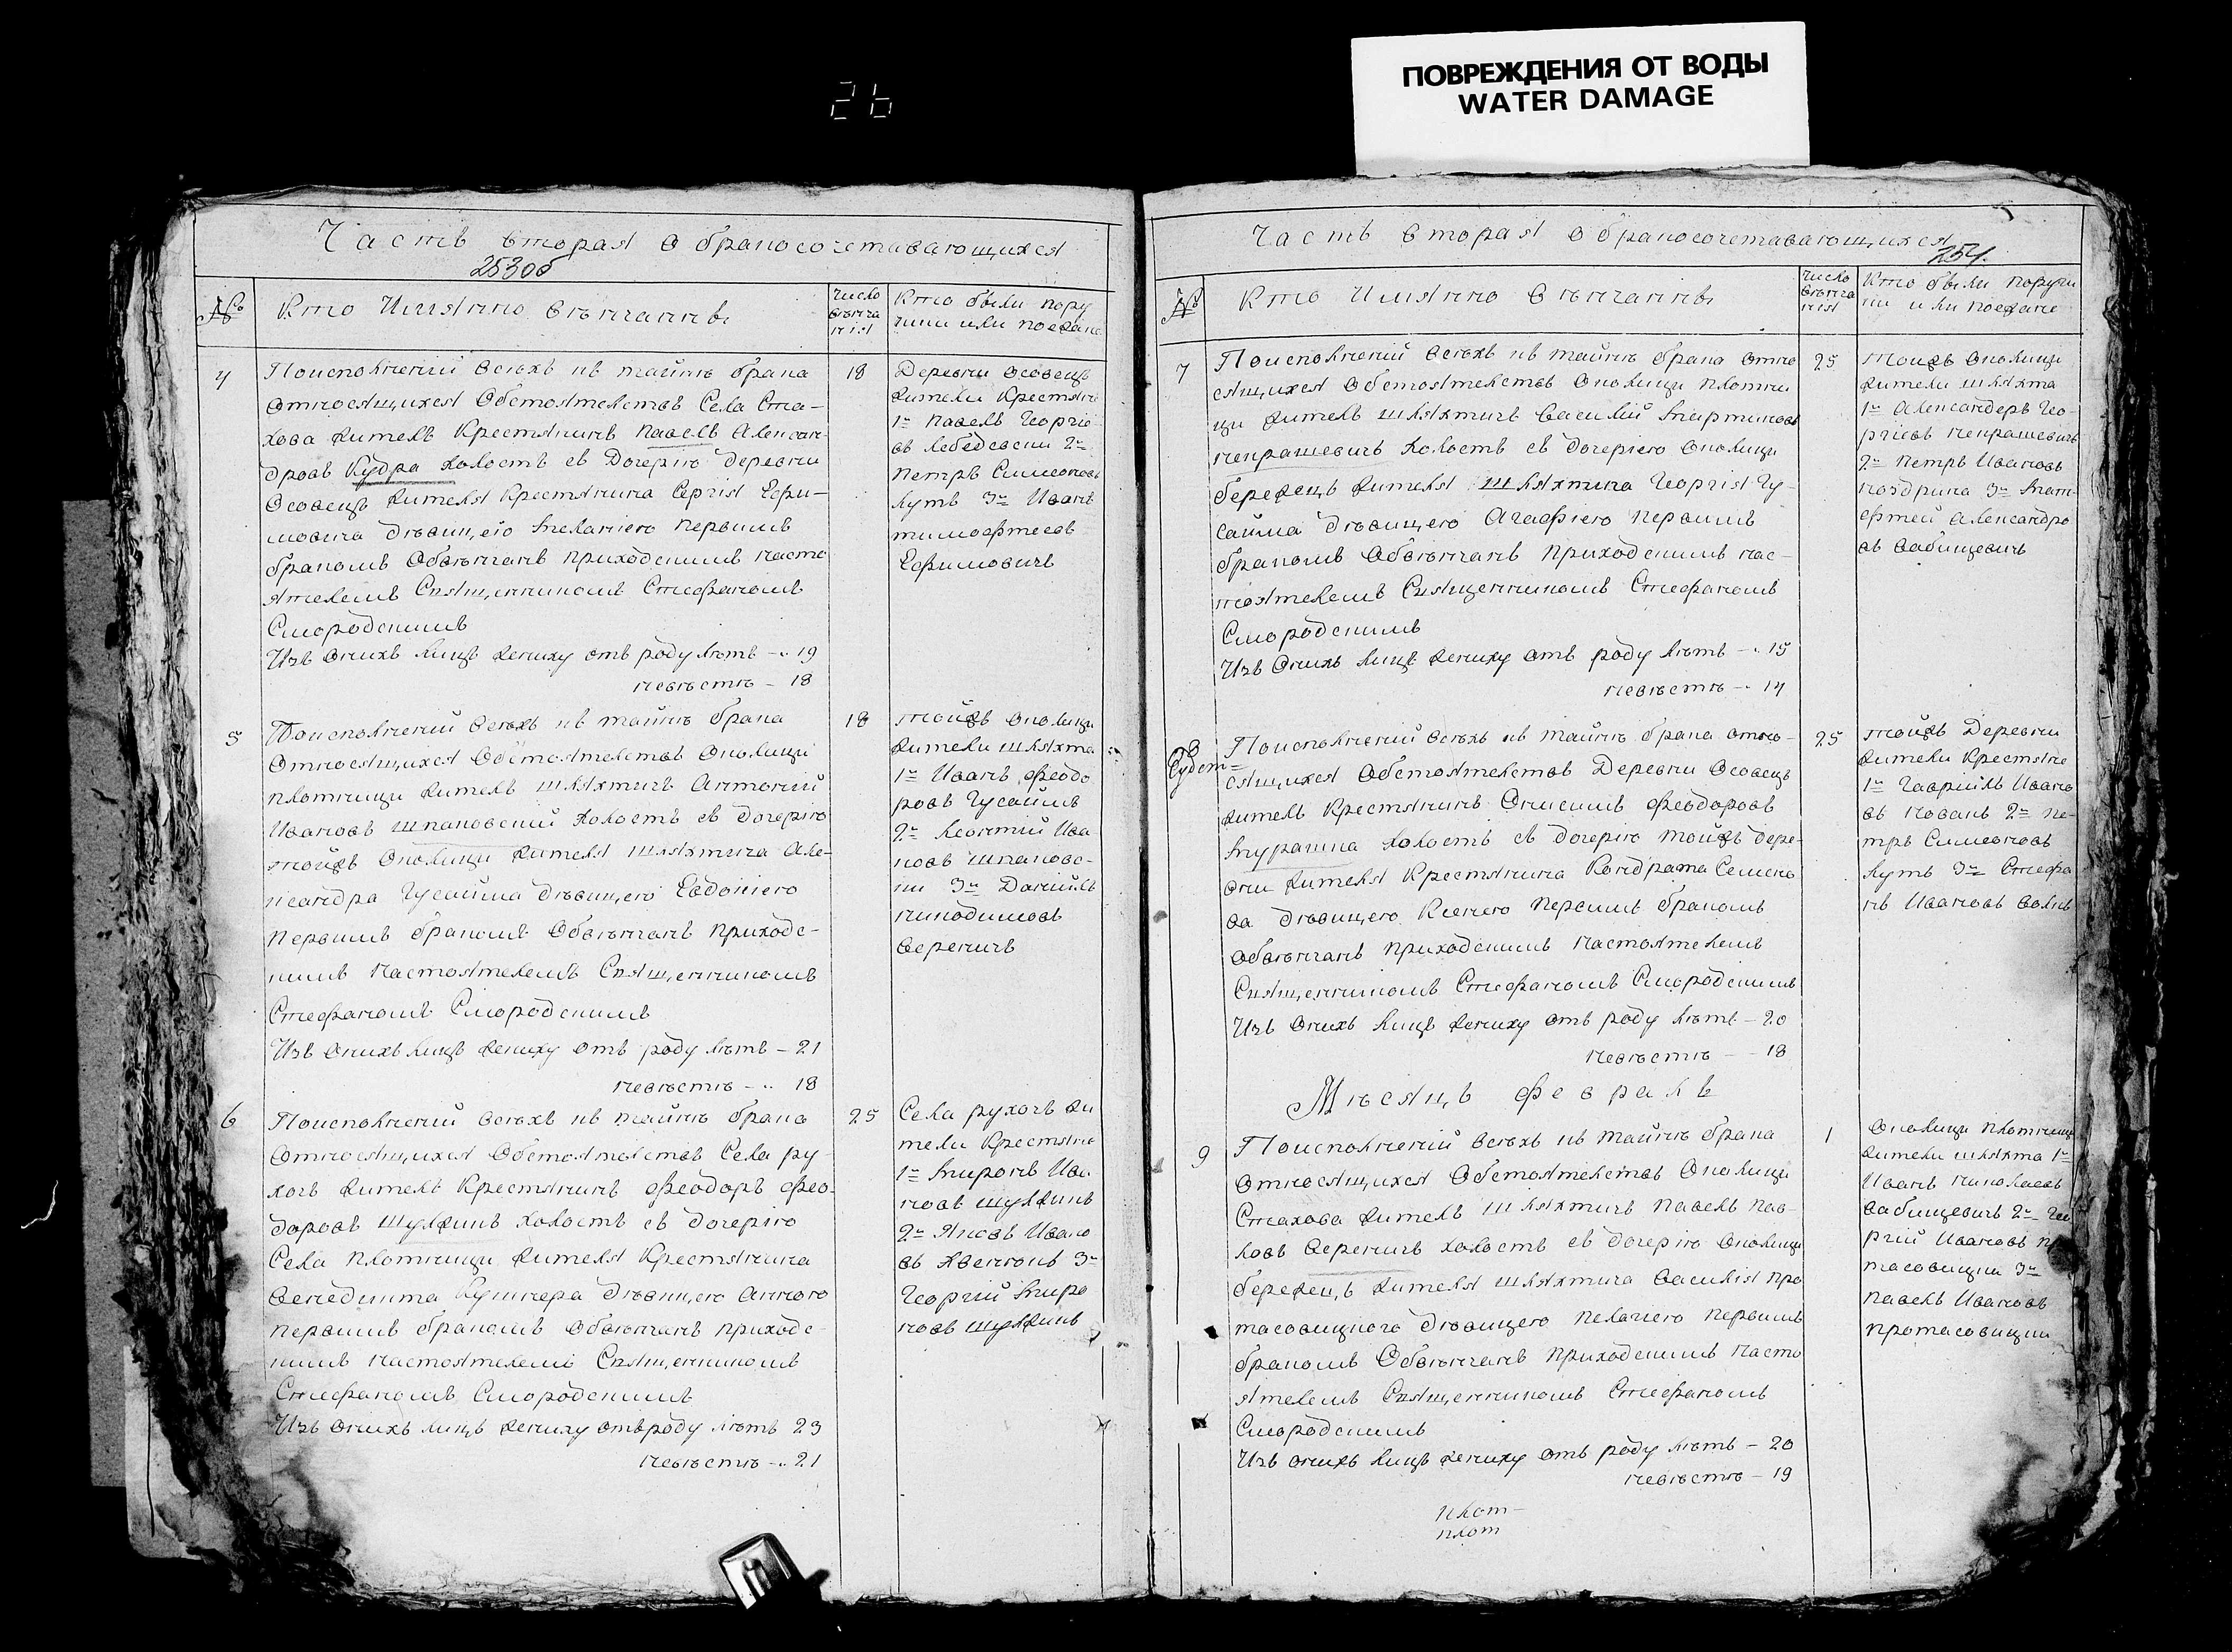 26
ПОВРЕЖДЕНИЯ ОТ ВОДЫ
WATER DAMAGE
Часть вторая о бракосочетавающихся
253об
№
Кто имянно венчаннъ
Число венчания
Кто были поручики или поезжане
4
По исполнений всехъ къ тайнѣ брака
относящихся обстоятельствъ Села Ста-
хова житель Крестянинъ Павелъ Алексан-
дровъ Кудра холостъ съ дочерію деревни
Осовецъ жителя Крестянина Сергія Ефи-
мовича дѣвицею Меланіею первымъ
бракомъ обвѣнчанъ приходскимъ насто
ятелемъ Священникомъ Стефаномъ
Смородскимъ
Изъ онихъ лицъ жениху отъ роду лѣтъ - 19
невѣстѣ - 18
18
Деревни Осовецъ
жители Крестяне
1й Павелъ Георгіе
въ Лебедевски 2й
Петръ Симеоновъ
Кутъ 3й Иванъ
Тимофѣевъ
Ефимовичъ
5
По исполнений всехъ къ тайнѣ брака
относящихся обстоятельствъ околици
плотници житель шляхтичъ Антоній
Ивановъ Шпаковский холостъ съ дочерію
тойжъ околици жителя шляхтича Але-
ксандра Гусайма дѣвицею Евдокіею
первимъ бракомъ обвѣнчанъ приходс-
кимъ настоятелемъ Священникомъ
Стефаномъ Смородскимъ
Изъ онихъ лицъ жениху отъ роду лѣтъ - 21
невѣстѣ - 18
18
тойжъ околици
жители шляхта
1й Иванъ Феодо
ровъ Гусаймъ
2й Леонтий Ива
новъ Шпаковс-
ки 3й Даніилъ
Никодимовъ
Вереничъ
6
По исполнений всехъ къ тайнѣ брака
относящихся обстоятельствъ Села ру-
хочъ житель Крестянинъ Феодоръ Фео-
доровъ Шулжикъ холостъ съ дочерію
Села плотници жителя Крестянина
Венедикта Кушнера дѣвицею Анною
первимъ бракомъ обвѣнчанъ приходс-
кимъ настоятелемъ Священникомъ
Стефаномъ Смородскимъ
Изъ онихъ лицъ жениху отъ роду лѣтъ 23
невѣстѣ - 21
25
Села рухочъ жи
тели Крестяне
1й Миронъ Ива
новъ Шулжикъ
2й Яковъ Ивано
въ 3й
Георгій Миро
новъ Шулжикъ
Часть вторая о бракосочетавающихся
254.
№
Кто имянно венчаннъ
Число венчания
Кто были поручики или поезжане
7
По исполнений всехъ къ тайнѣ брака отно
сящихся обстоятельствъ околици плотни
ци житель шляхтичъ Василий Мартиновъ
Некрашевичъ холостъ съ дочерію околици
бережецъ жителя шляхтича Георгія Гу-
сайма дѣвицею Агафіею первимъ
бракомъ обвѣнчанъ приходскимъ нас-
тоятелемъ Священникомъ Стефаномъ
Смородскимъ
Изъ онихъ лицъ жениху отъ роду лѣтъ - 15
невѣстѣ - 14
25
тойжъ околици
жители шляхта
1й Александеръ Гео-
ргіевъ Некрашевичъ
2й Петръ Ивановъ
Ноздрика 3й Мат-
ѳей Александро
въ Вабищевичъ
8
По исполнений всехъ къ тайнѣ брака отно-
сящихся обстоятельствъ Деревни Осовецъ
житель Крестянинъ Онисимъ Феодоровъ
Мурашка холостъ съ дочерію тойжъ дере-
вни жителя Крестянина Кондрата Семено
ва дѣвицею Ксеніею первимъ бракомъ
обвѣнчанъ приходскимъ настоятелемъ
Священникомъ Стефаномъ Смородскимъ
Изъ онихъ лицъ жениху отъ роду лѣтъ - 20
невѣстѣ - 18
25
тойжъ Деревни
жители Крестяне
1й Гавриилъ Ивано
въ Ковалъ 2й Пе-
тръ Симеоновъ
Кутъ 3й Стефа
нъ Ивановъ Волкъ
Мѣсяцъ Февраль
9
По исполнений всехъ къ тайнѣ брака
относящихся обстоятельствъ околици
Стахова житель шляхтичъ Павелъ Пав-
ловъ Вереничъ холостъ съ дочерію околици
бережецъ жителя шляхтича Василія Про
тасовицкого дѣвицею Пелагіею первимъ
бракомъ обвѣнчанъ приходскимъ насто
ятелемъ Священникомъ Стефаномъ
Смородскимъ
Изъ онихъ лицъ жениху отъ роду лѣтъ - 20
невѣстѣ - 19
1
Околици плотници
жители шляхта 1й
Иванъ Николаевъ
Вабищевичъ 2й Гео
ргій Ивановъ Про
тасовицки 3й
Павелъ Ивановъ
Протасовицки
плот-
плот